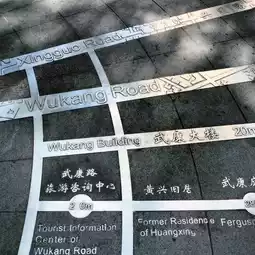 Xingguo Road
Wukang Road
Wukang Building 武康大楼 20m
武康路
旅游咨询中心
黄兴旧居
武康
2 0m
Tourist Information
Center of
Wukang Road
Former Residence
of Huangxing
Fergus